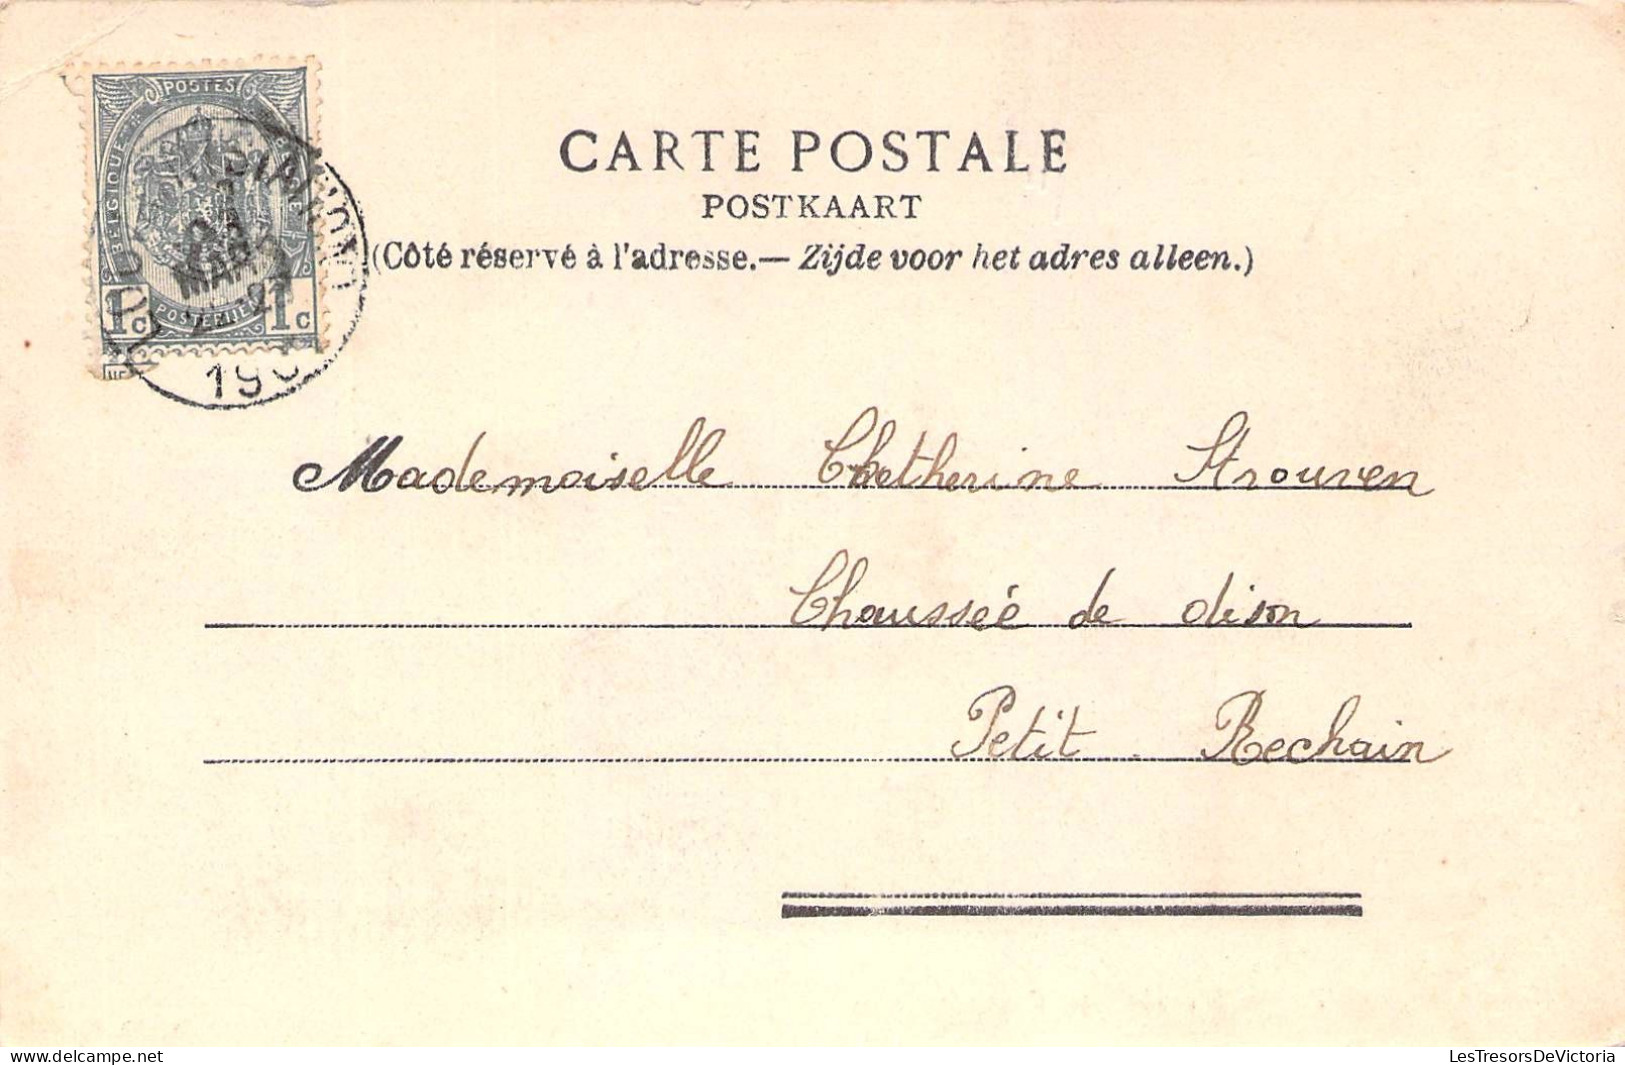 POSTES
BELGIQUE
POSTERIJEN
1c 1c
MARS
190
CARTE POSTALE
POSTKAART
(Côté réservé à l'adresse.— Zijde voor het adres alleen.)
Mademoiselle Chetherine Strouven
Chausseé de dison
Petit Rechain
LesTresorsDeVictoria